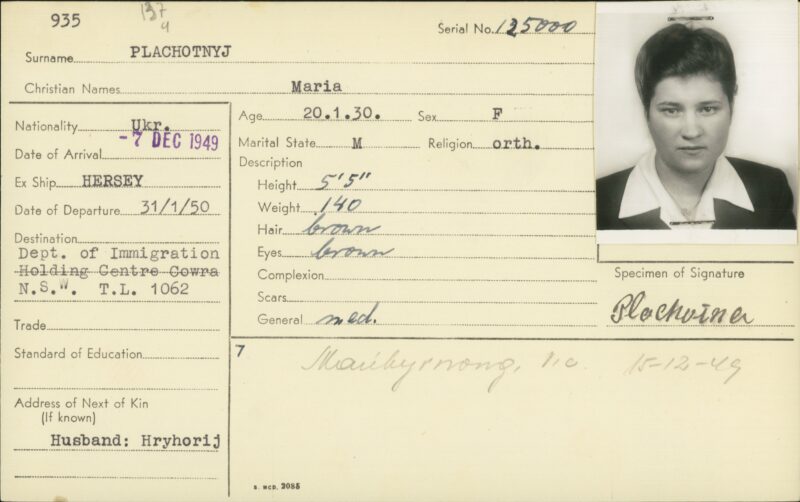 935
137
4
Serial No. 125000
Surname PLACHOTNYJ
Christian Names Maria
Nationality Ukr.
Date of Arrival -7 DEC 1949
Ex Ship HERSEY
Date of Departure 31/1/50
Destination
Dept. of Immigration
Holding Centre Cowra
N.S.W. T.L. 1062
Trade
Standard of Education
Address of Next of Kin
(If known)
Husband: Hryhorij
Age 20.1.30. Sex F
Marital State M Religion orth.
Description
Height 5'5"
Weight 140
Hair brown
Eyes brown
Complexion
Scars
General med.
Specimen of Signature
Plachotna
7
Maribyrnong, Vic. 15-12-49
S. MCD. 2085